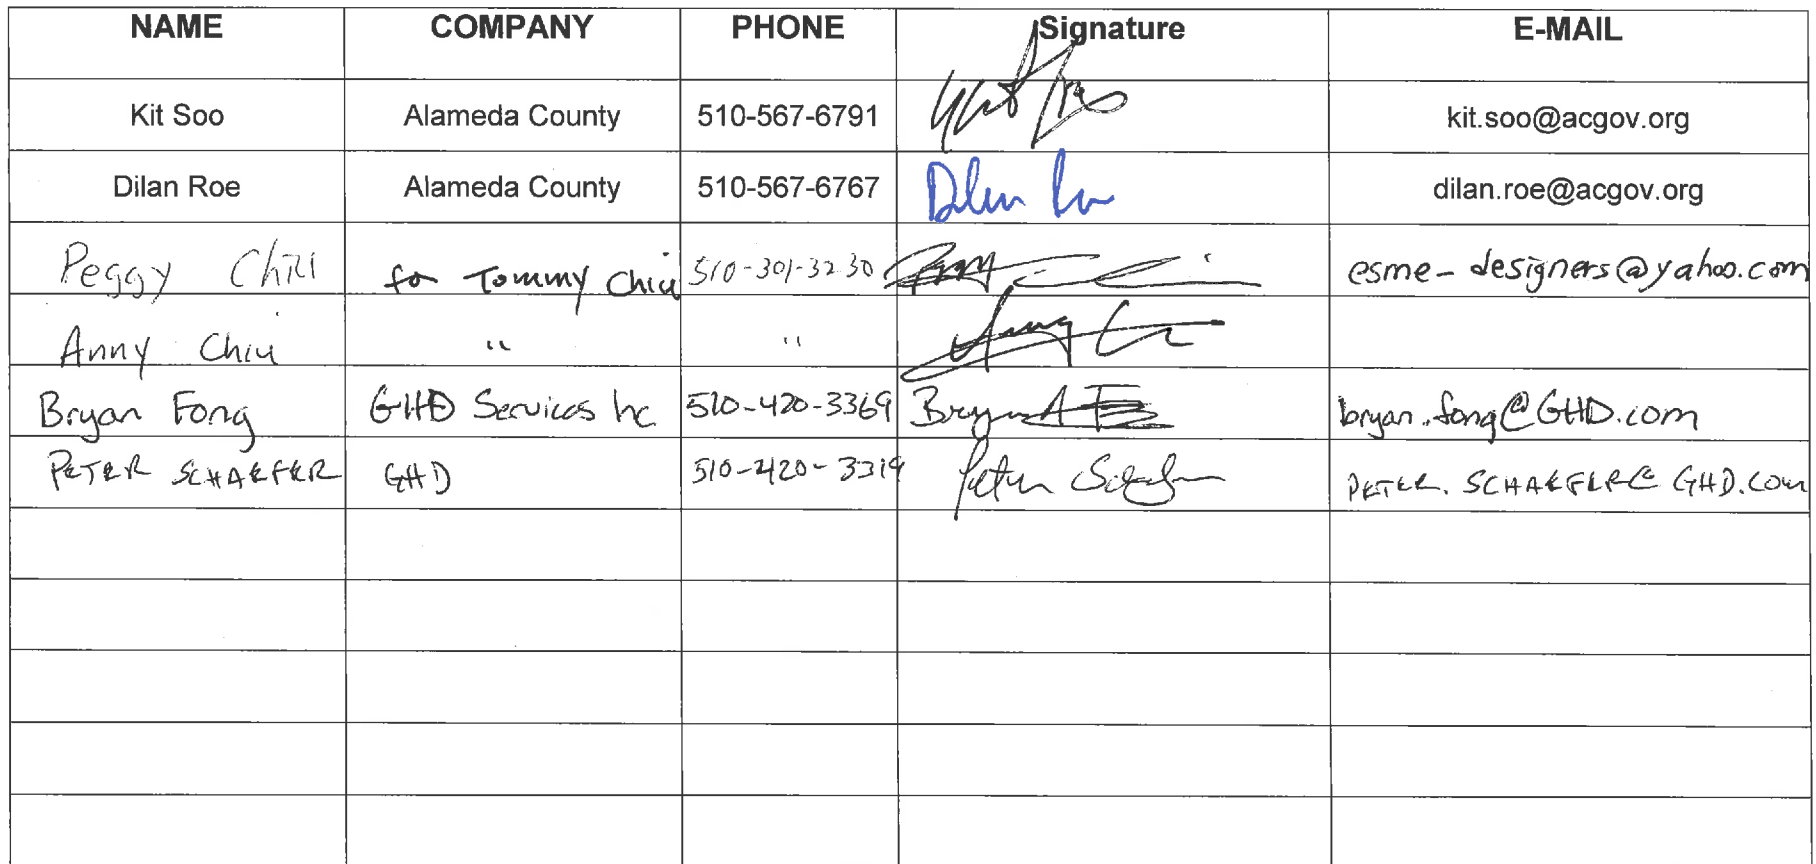 NAME COMPANY PHONE Signature E-MAIL
Kit Soo Alameda County 510-567-6791 Kit Soo kit.soo@acgov.org
Dilan Roe Alameda County 510-567-6767 Dilan Roe dilan.roe@acgov.org
Peggy Chiu for Tommy Chiu 510-301-3230 esme-designers@yahoo.com
Anny Chiu " " Anny
Bryan Fong GHD Services Inc 510-420-3369 Bryan bryan.fong@GHD.com
PETER SCHAEFER GHD 510-420-3319 Peter Schaefer PETER.SCHAEFER@GHD.COM